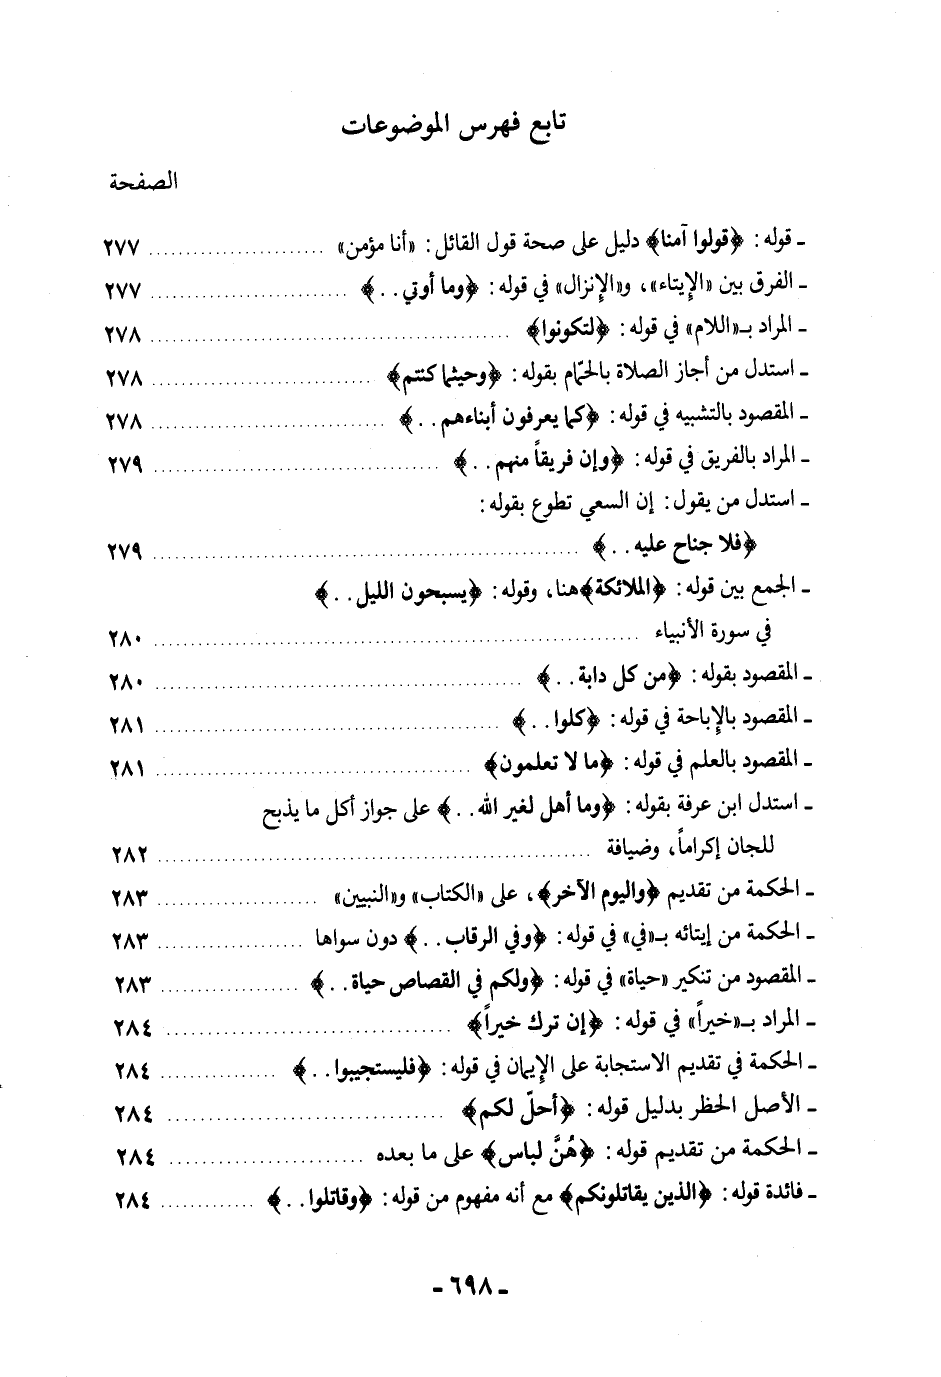 تابع فهرس الموضوعات
الصفحة
ـ قوله: ﴿قولوا آمنا﴾ دليل على صحة قول القائل: «أنا مؤمن» ........................ ٢٧٧
ـ الفرق بين «الإيتاء»، و«الإنزال» في قوله: ﴿وما أوتي..﴾ ........................ ٢٧٧
ـ المراد بـ«اللام» في قوله: ﴿لتكونوا﴾ ........................ ٢٧٨
ـ استدل من أجاز الصلاة بالحمّام بقوله: ﴿وحيثما كنتم﴾ ........................ ٢٧٨
ـ المقصود بالتشبيه في قوله: ﴿كما يعرفون أبناءهم..﴾ ........................ ٢٧٨
ـ المراد بالفريق في قوله: ﴿وإن فريقاً منهم..﴾ ........................ ٢٧٩
ـ استدل من يقول: إن السعي تطوع بقوله:
﴿فلا جناح عليه..﴾ ........................ ٢٧٩
ـ الجمع بين قوله: ﴿الملائكة﴾هنا، وقوله: ﴿يسبحون الليل..﴾
في سورة الأنبياء ........................ ٢٨٠
ـ المقصود بقوله: ﴿من كل دابة..﴾ ........................ ٢٨٠
ـ المقصود بالإباحة في قوله: ﴿كلوا..﴾ ........................ ٢٨١
ـ المقصود بالعلم في قوله: ﴿ما لا تعلمون﴾ ........................ ٢٨١
ـ استدل ابن عرفة بقوله: ﴿وما أهل لغير الله..﴾ على جواز أكل ما يذبح
للجان إكراماً، وضيافة ........................ ٢٨٢
ـ الحكمة من تقديم ﴿واليوم الآخر﴾، على «الكتاب» و«النبيين» ........................ ٢٨٣
ـ الحكمة من إيتائه بـ«في» في قوله: ﴿وفي الرقاب..﴾ دون سواها ........................ ٢٨٣
ـ المقصود من تنكير «حياة» في قوله: ﴿ولكم في القصاص حياة..﴾ ........................ ٢٨٣
ـ المراد بـ«خيراً» في قوله: ﴿إن ترك خيراً﴾ ........................ ٢٨٤
ـ الحكمة في تقديم الاستجابة على الإيمان في قوله: ﴿فليستجيبوا..﴾ ........................ ٢٨٤
ـ الأصل الحظر بدليل قوله: ﴿أحلّ لكم﴾ ........................ ٢٨٤
ـ الحكمة من تقديم قوله: ﴿هُنَّ لباس﴾ على ما بعده ........................ ٢٨٤
ـ فائدة قوله: ﴿الذين يقاتلونكم﴾ مع أنه مفهوم من قوله: ﴿وقاتلوا..﴾ ........................ ٢٨٤
ـ ٦٩٨ ـ